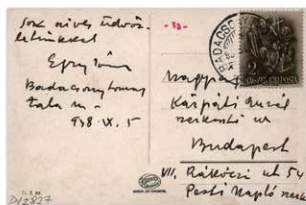 Sok szives üdvöz-
letünkkel
Badacsonytomaj
Zala m.
938. IX. 5
BADACSO
2
MAGYAR KIR. POSTA
Kárpáti Aurél
szerkesztő úr
Budapest
VII, Rákóczi út 54
Pesti Napló szerk
D/2827